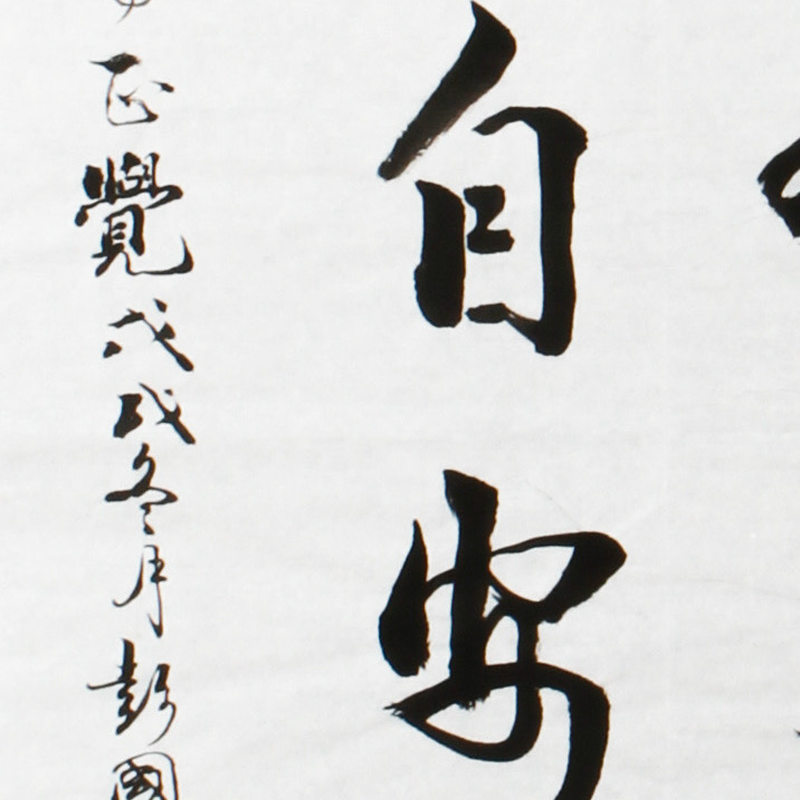 自安
正覺戊戌冬月彭國